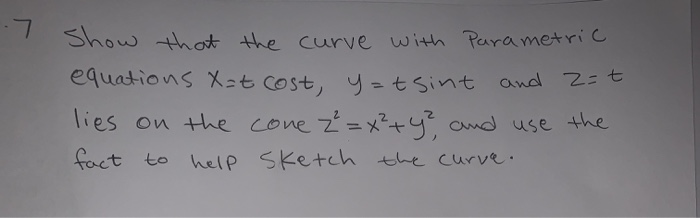 .7 Show that the curve with Parametric
equations X=t cost, y=tsint and Z=t
lies on the cone Z²=x²+y², and use the
fact to help Sketch the curve.